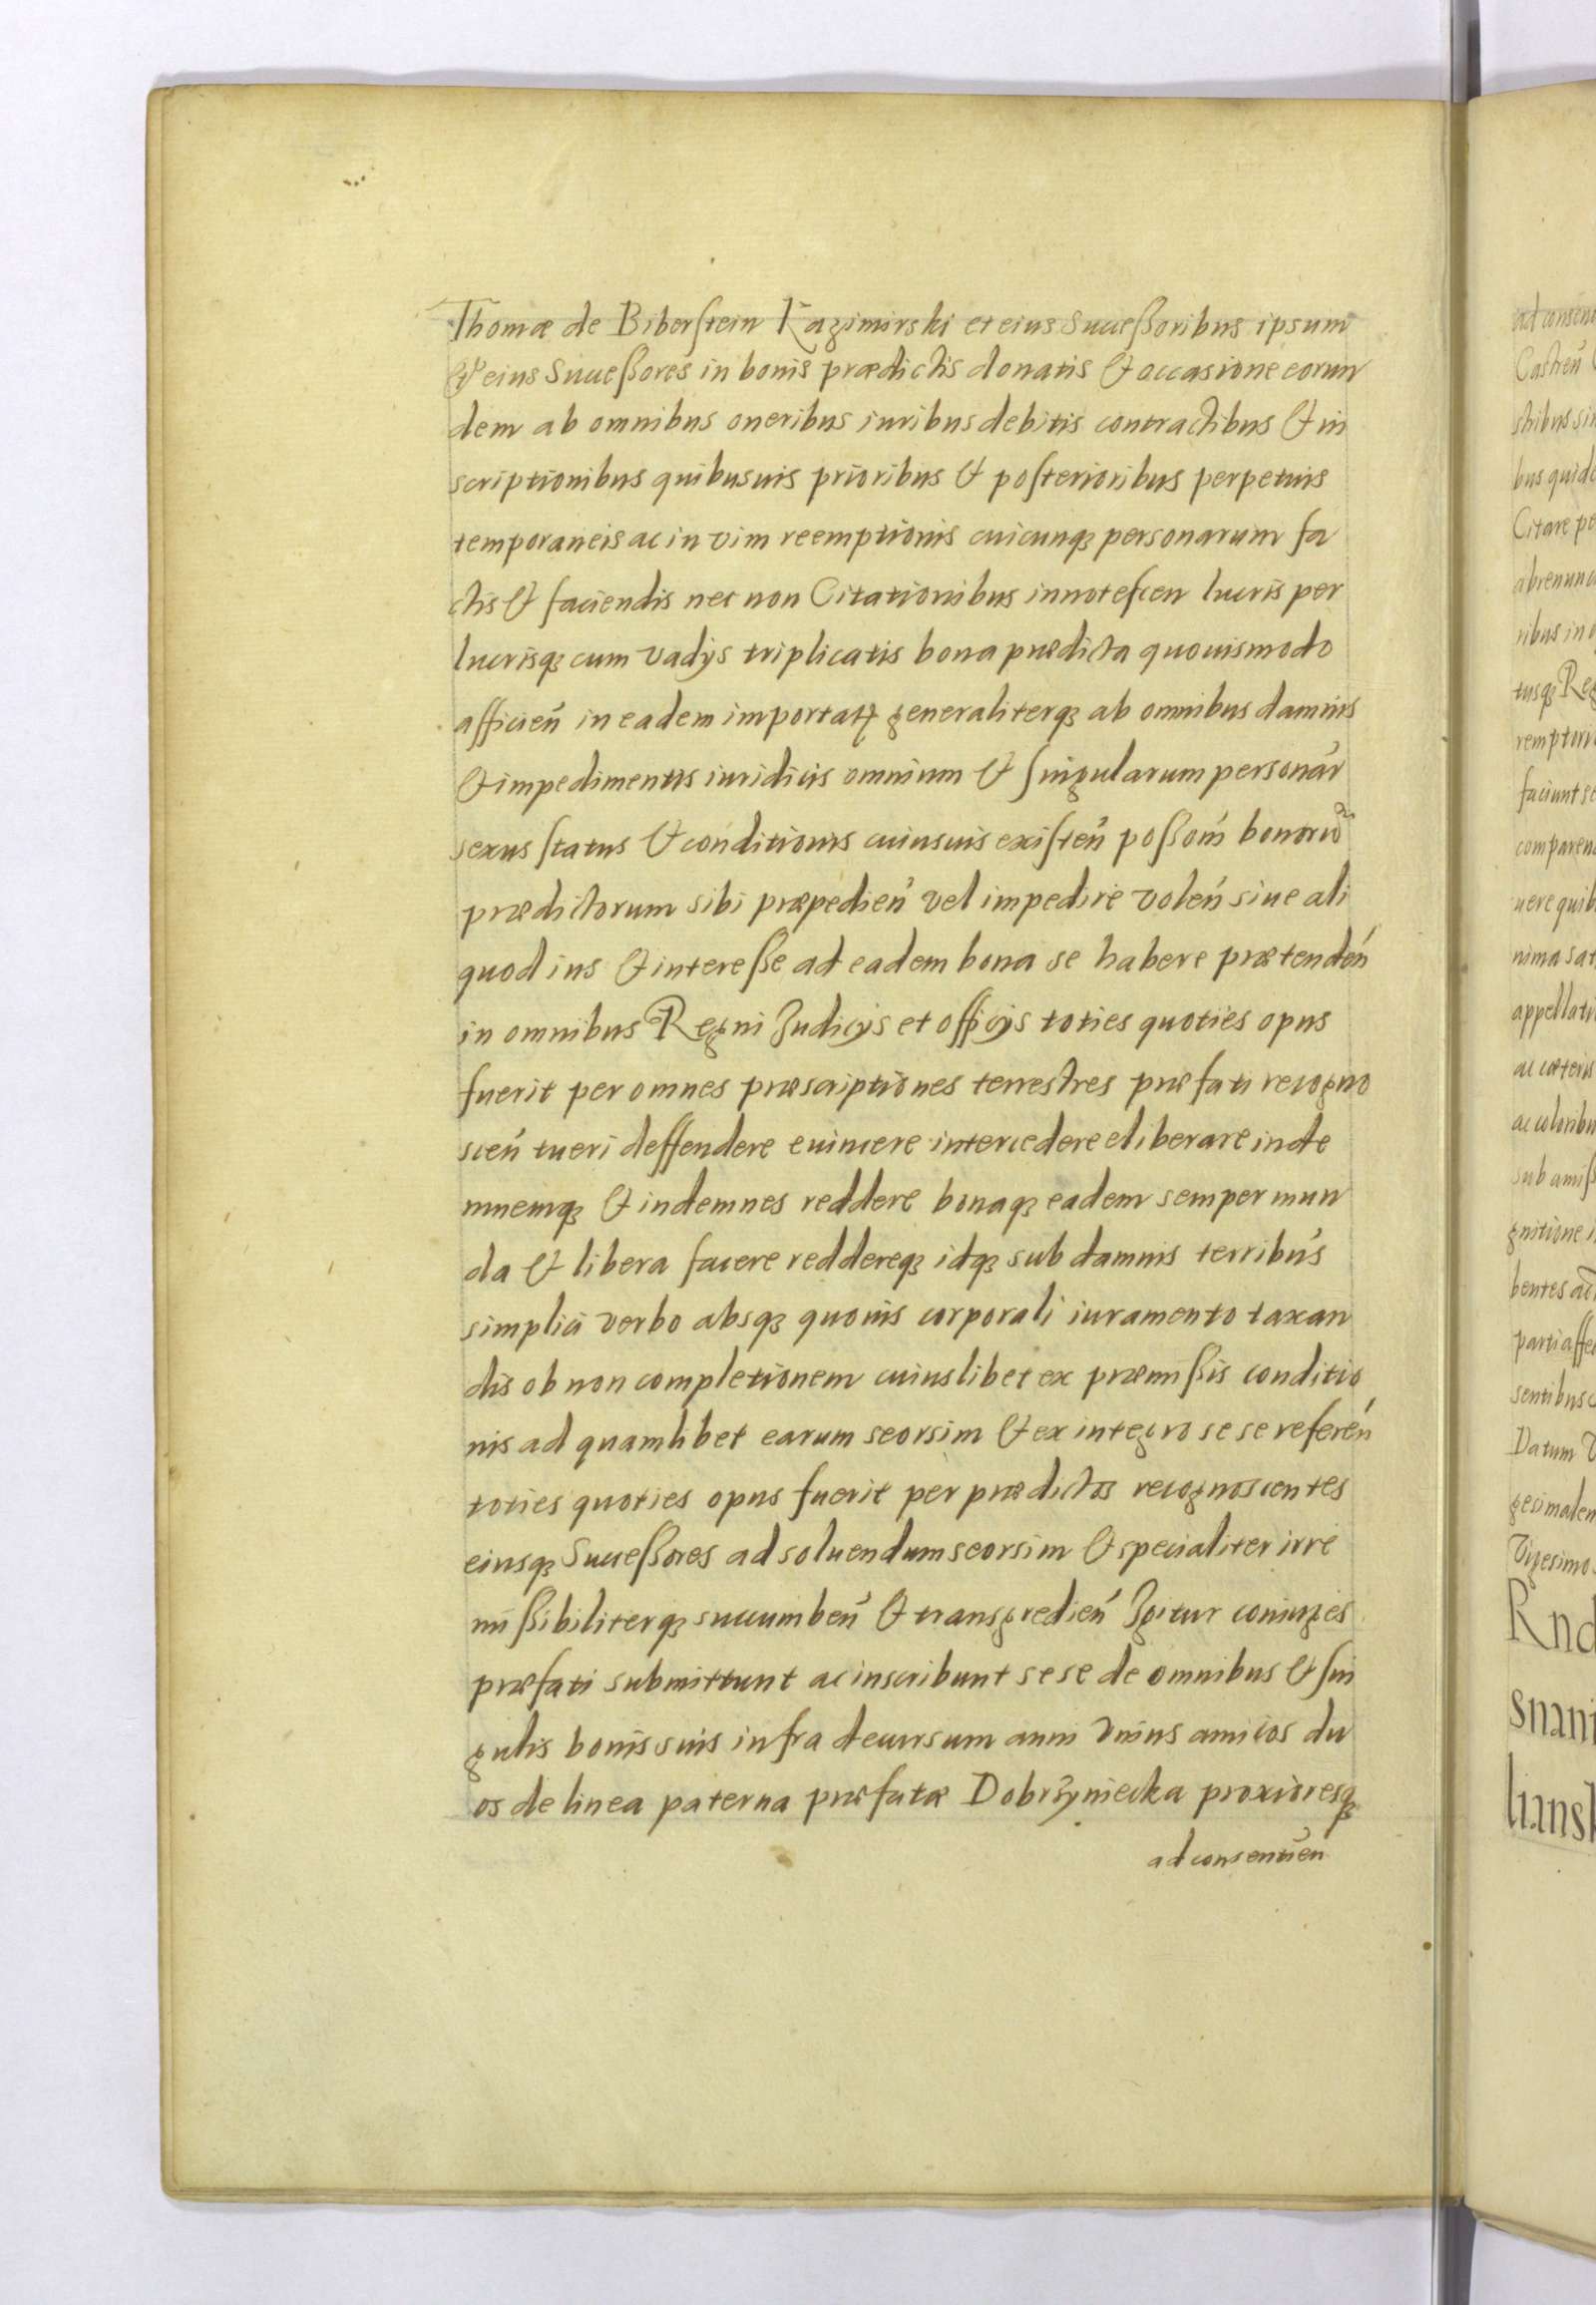 Thomæ de Biberstein Kazimirski et eius Successoribus ipsum
& eius Successores in bonis prædictis donatis & occasione eorun
dem ab omnibus oneribus iuribus debitis contractibus & in
scriptionibus quibusuis prioribus & posterioribus perpetuis
temporaneis ac in vim reemptionis cuicunqꝫ personarum fa
ctis & faciendis nec non Citationibus innotescen lucris per
lucrisqꝫ cum vadijs triplicatis bona prædicta quouismodo
afficień in eadem importatꝭ generaliterqꝫ ab omnibus damnis
& impedimentis iuridicis omnium & singularum personár
sexus status & conditionis cuiusuis existeń possoḿ bonorũ
prædictorum sibi præpedień vel impedire voleń siue ali
quod ius & interesse ad eadem bona se habere prætendeń
in omnibus Regni Judicijs et officijs toties quoties opus
fuerit per omnes præscriptiones terrestres præfati recogno
sceń tueri deffendere euincere intercedere eliberare inde
mnemqꝫ & indemnes reddere bonaqꝫ eadem semper mun
da & libera facere reddereqꝫ idqꝫ sub damnis terribús
simplici verbo absqꝫ quouis corporali iuramento taxan
dis ob non completionem cuiuslibet ex præmissis conditio
nis ad quamlibet earum seorsim & ex integro se se refereń
toties quoties opus fuerit per prædictos recognoscentes
eiusqꝫ Successores ad soluendum seorsim & specialiter irre
missibiliterqꝫ succumbeń & transgredień Igitur coniuges
præfati submittunt ac inscribunt sese de omnibus & sin
gulis bonis suis infra decursum anni vnius amicos du
os de linea paterna præfatæ Dobrzyniecka proxioresqꝫ
ad consentień
ad consen
Castreń
ctibus si
bus quide
Citare pe
abrenunc
ribus in
tusqꝫ Reg
remptor
faciunt se
comparen
uere quib
nima sat
appellati
ac cæteris
ac coloribu
sub amiss
gnitione i
bentes ac
parti affe
sentibus
Datum V
gesimalem
Vigesimo
Rnd
snani
liansk